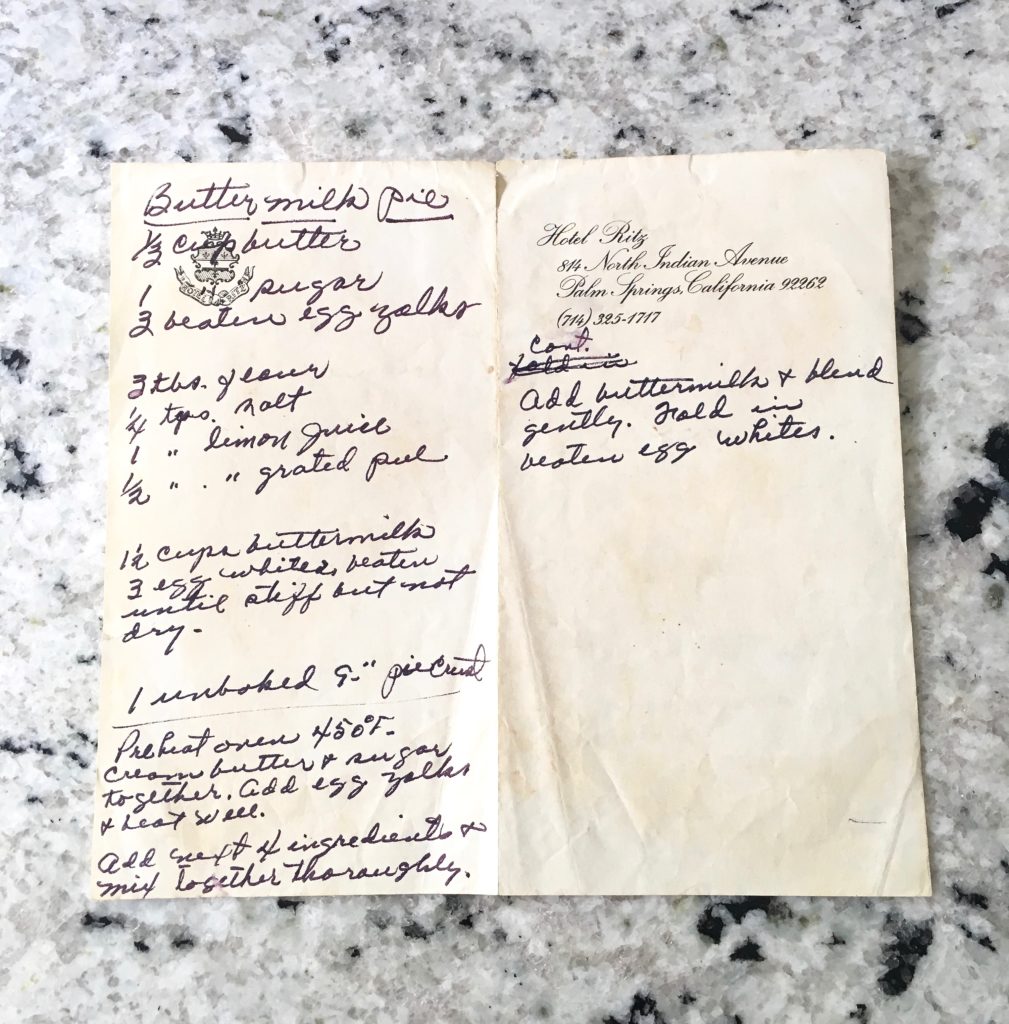 Butter milk pie
½ cup butter
HOTEL RITZ
1 sugar
3 beaten egg yolks
3 tbs. flour
¼ tps. salt
1 " limon juice
½ " . " grated peel
1½ cups buttermilk
3 egg whites, beaten
until stiff but not
dry.
1 unbaked 9" piecrust
Preheat oven 450°F.
Cream butter & sugar
together. Add egg yolks
& beat well.
Add next 4 ingredients &
mix together thoroughly.
Hotel Ritz
814 North Indian Avenue
Palm Springs, California 92262
(714) 325-1717
Cont.
Fold in
Add buttermilk & blend
gently. Fold in
beaten egg whites.